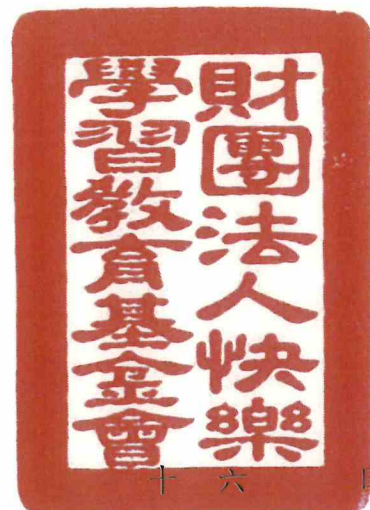 財團法人快樂
學習教育基金會
十六